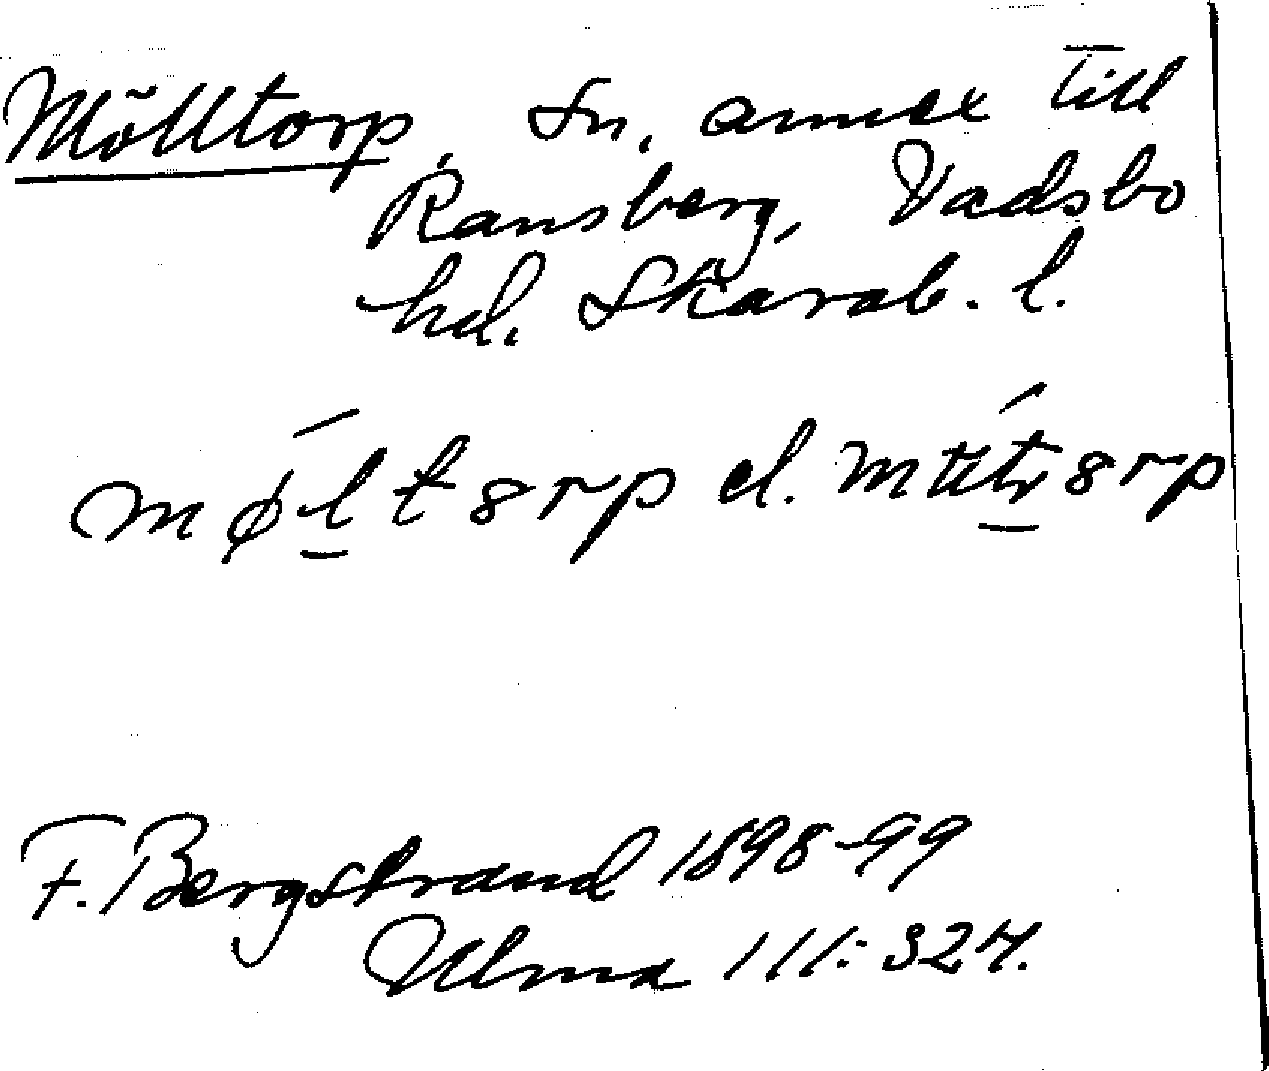 Mölltorp, Sn, annex till
Ransberg, Vadsbo
hd. Skarab. l.
møltorp el.
F. Bergstrand 1898-99
Ulma 111: 324.